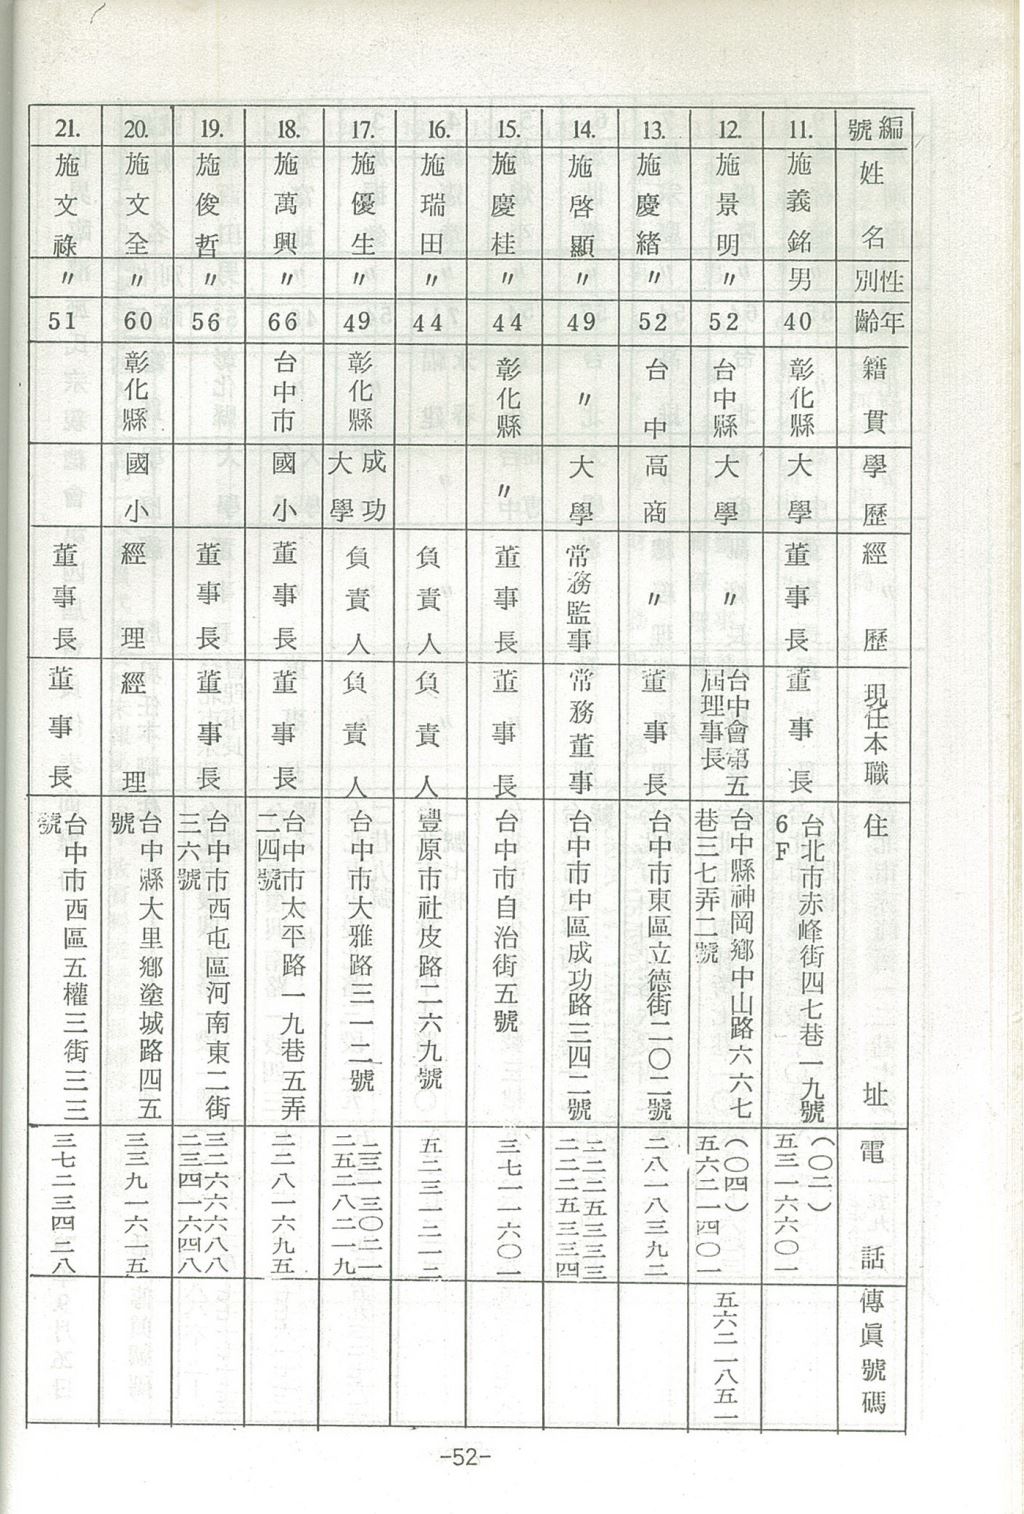 編號 姓名 性別 年齡 籍貫 學歷 經歷 現任本職 住址 電話 傳眞號碼
11. 施義銘 男 40 彰化縣 大學 董事長 董事長 台北市赤峰街四七巷一九號6F (〇二)五三一六六〇一
12. 施景明 〃 52 台中縣 大學 〃 台中會第五屆理事長 台中縣神岡鄉中山路六六七巷三七弄二號 (〇四)五六二一四〇一 五六二一八五一
13. 施慶緒 〃 52 台中 高商 〃 董事長 台中市東區立德街二〇二號 二八一八三九二
14. 施啓顯 〃 49 〃 大學 常務監事 常務董事 台中市中區成功路三四二號 二二二五三三三 二二二五三三四
15. 施慶桂 〃 44 彰化縣 〃 董事長 董事長 台中市自治街五號 三七一一六〇一
16. 施瑞田 〃 44 負責人 負責人 豐原市社皮路二六九號 五二三一二一二
17. 施優生 〃 49 彰化縣 成功大學 負責人 負責人 台中市大雅路三一二號 二三一三〇二一 二五二八二一九
18. 施萬興 〃 66 台中市 國小 董事長 董事長 台中市太平路一九巷五弄二四號 二二八一六九五
19. 施俊哲 〃 56 董事長 董事長 台中市西屯區河南東二街三六號 三二六六六八八 二三四一六四八
20. 施文全 〃 60 彰化縣 國小 經理 經理 台中縣大里鄉塗城路四五號 三三九一六一五
21. 施文祿 〃 51 董事長 董事長 台中市西區五權三街三三號 三七二三四二八
-52-